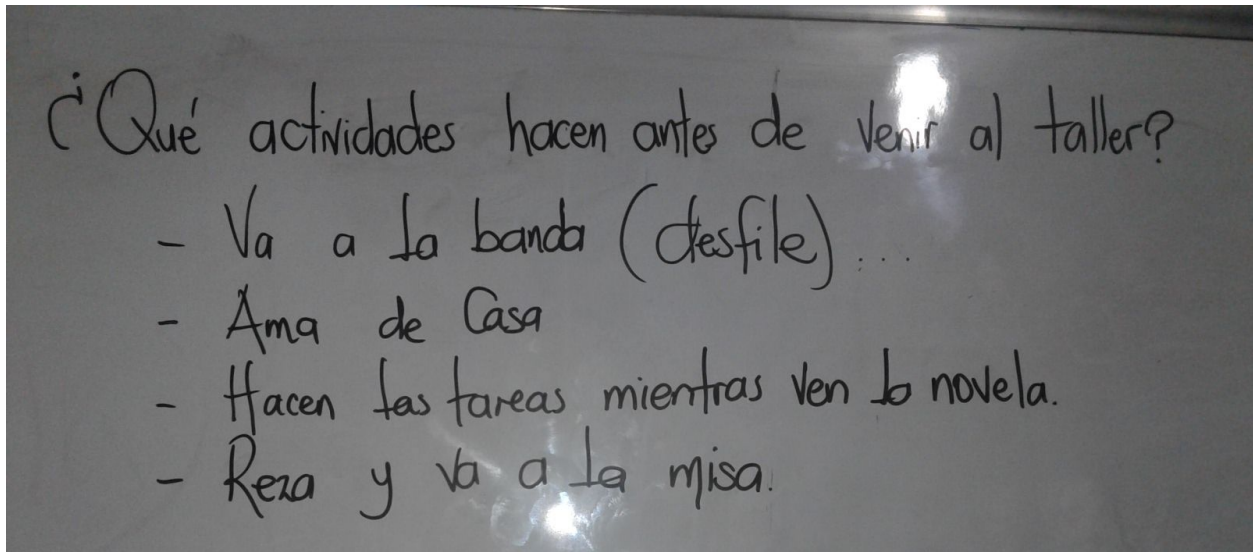 ¿Qué actividades hacen antes de venir al taller?
- Va a la banda (desfile)...
- Ama de Casa
- Hacen las tareas mientras ven la novela.
- Reza y va a la misa.